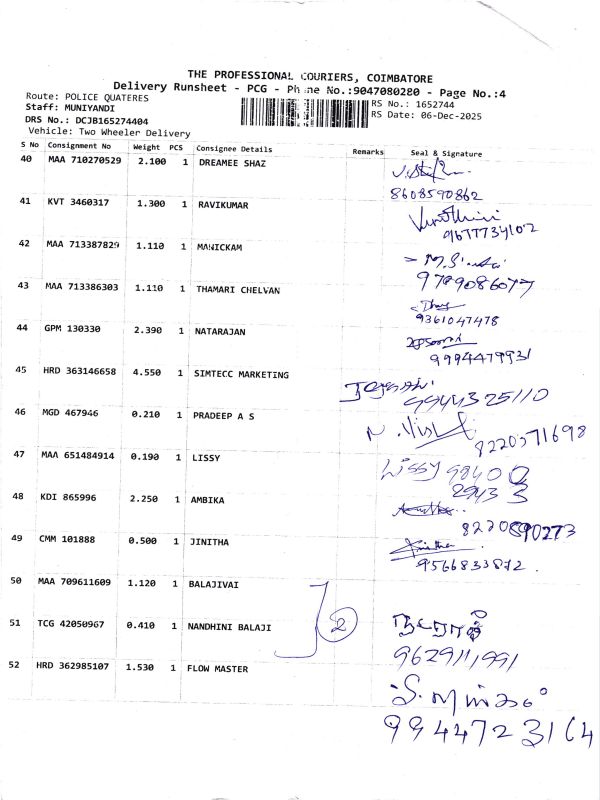 THE PROFESSIONAL COURIERS, COIMBATORE
Delivery Runsheet - PCG - Phone No.:9047080280 - Page No.:4
Route: POLICE QUATERES
RS No.: 1652744
Staff: MUNIYANDI
RS Date: 06-Dec-2025
DRS No.: DCJB165274404
Vehicle: Two Wheeler Delivery
S No Consignment No Weight PCS Consignee Details Remarks Seal & Signature
40 MAA 710270529 2.100 1 DREAMEE SHAZ
8608590862
41 KVT 3460317 1.300 1 RAVIKUMAR
9677734102
42 MAA 713387829 1.110 1 MANICKAM
9789086077
43 MAA 713386303 1.110 1 THAMARI CHELVAN
9361047478
44 GPM 130330 2.390 1 NATARAJAN
9994479931
45 HRD 363146658 4.550 1 SIMTECC MARKETING
9944325110
46 MGD 467946 0.210 1 PRADEEP A S
8220571698
47 MAA 651484914 0.190 1 LISSY
Lissy 98400
29433
48 KDI 865996 2.250 1 AMBIKA
8220890273
49 CMM 101888 0.500 1 JINITHA
Jinitha
9566833872.
50 MAA 709611609 1.120 1 BALAJIVAI
2
51 TCG 42050967 0.410 1 NANDHINI BALAJI
9629111991
52 HRD 362985107 1.530 1 FLOW MASTER
9944723164